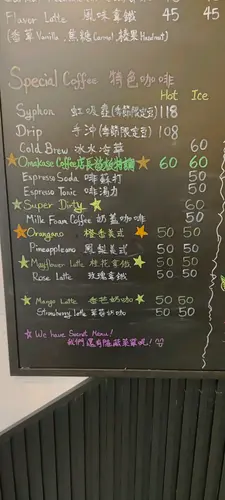 Flavor Latte 風味拿鐵 45 45
(香草Vanilla, 焦糖Caramel, 榛果Hazelnut)
Special Coffee 特色咖啡
Hot Ice
Syphon 虹吸壺(季節限定豆) 118
Drip 手沖(季節限定豆) 108
Cold Brew 冰水冷萃 60
Omakase Coffee店長發板特調 60 60
Espresso Soda 啡蘇打 50
Espresso Tonic 啡湯力 50
Super Dirty 60
Milk Foam Coffee 奶蓋咖啡 50
Orangano 橙香美式 50 50
Pineappleano 鳳梨美式 50 50
Mayflower Latte 桂花拿鐵 50 50
Rose Latte 玫瑰拿鐵 50 50
Mango Latte 香芒奶咖 50 50
Strawberry Latte 草莓奶咖 50 50
We have Secret Menu!
我們還有隱藏菜單呢!